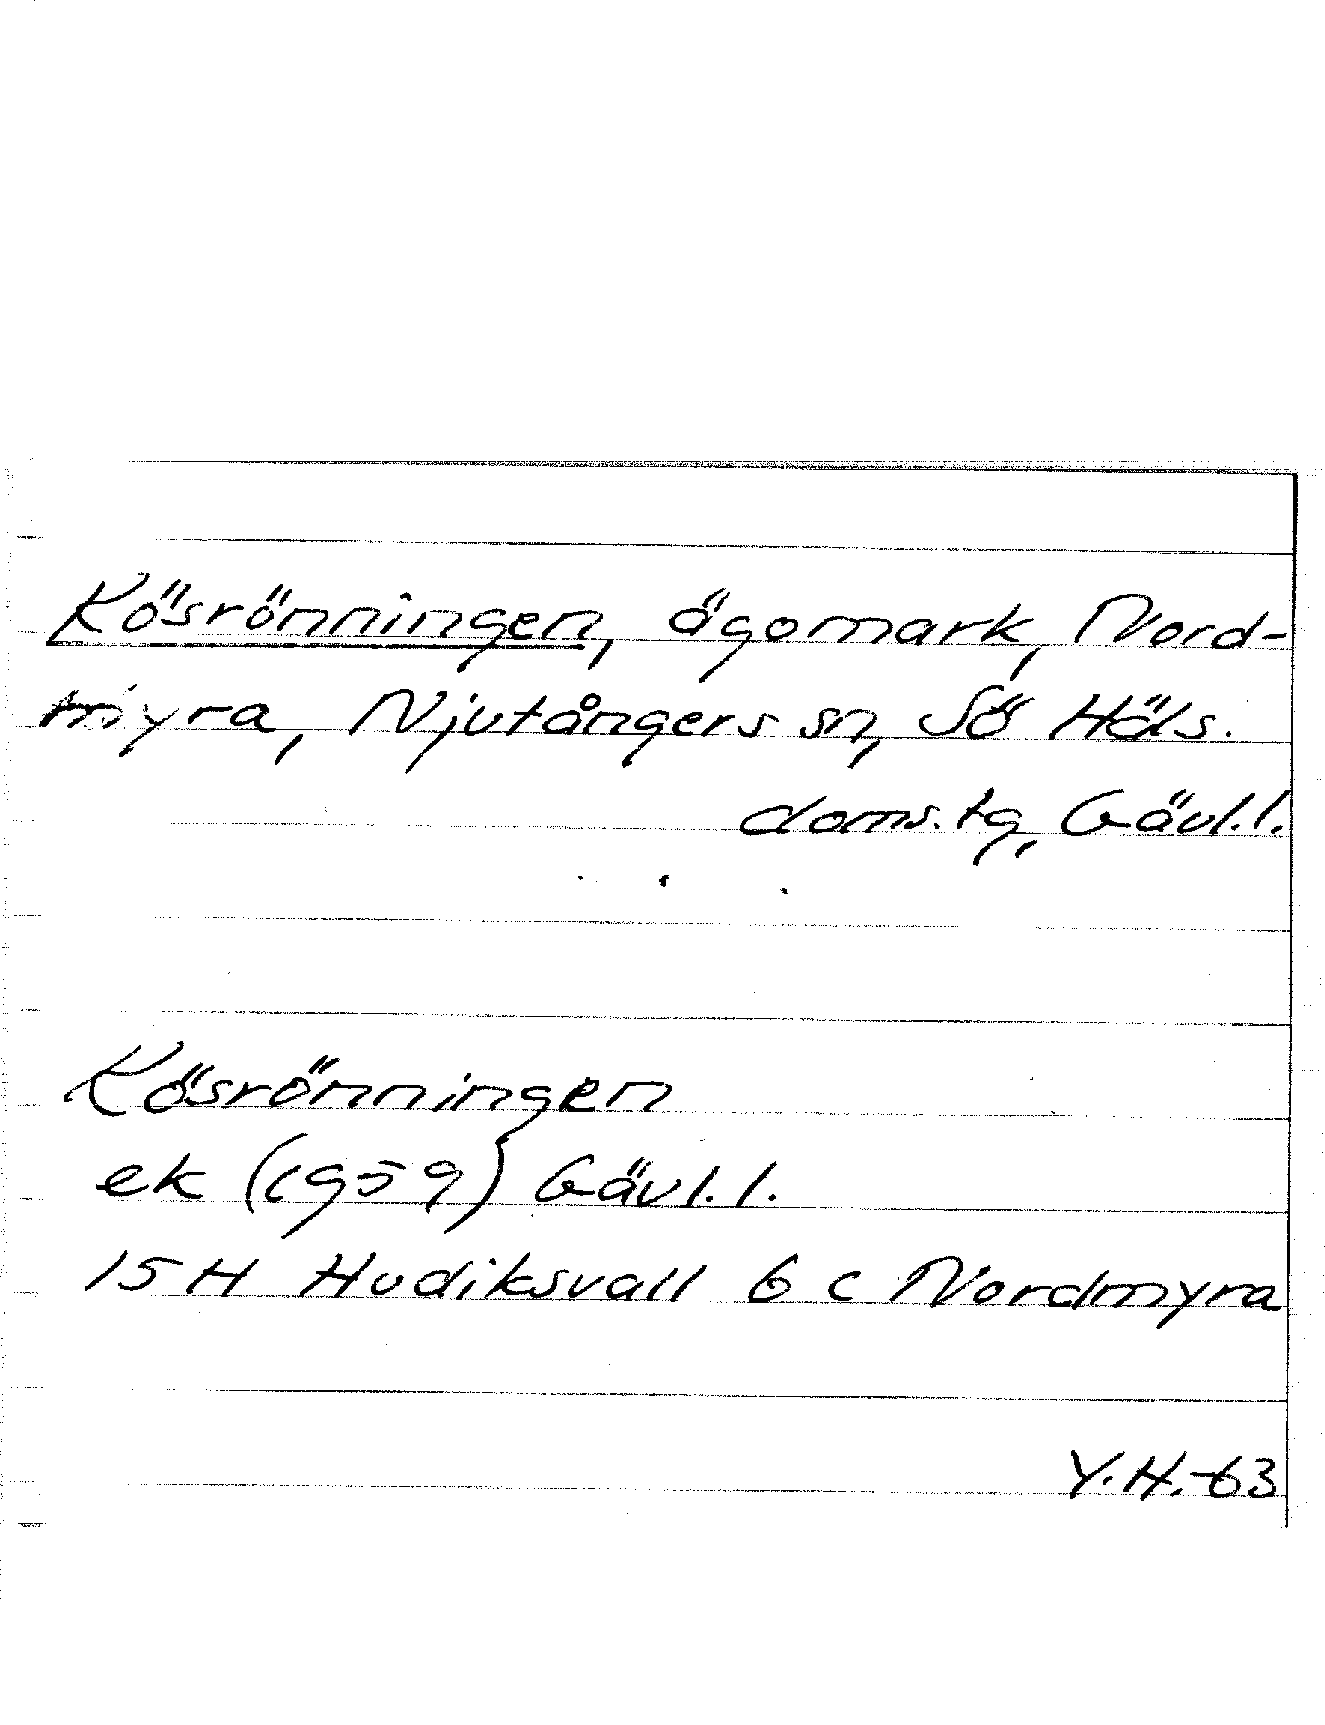 Kösrönningen, ägomark, Nord-
myra, Njutångers sn, Sö Häls.
doms.tg, Gävl.l.
Kösrönningen
ek (1959) Gävl.l.
15 H Hudiksvall 6 c Nordmyra
Y.H.-63